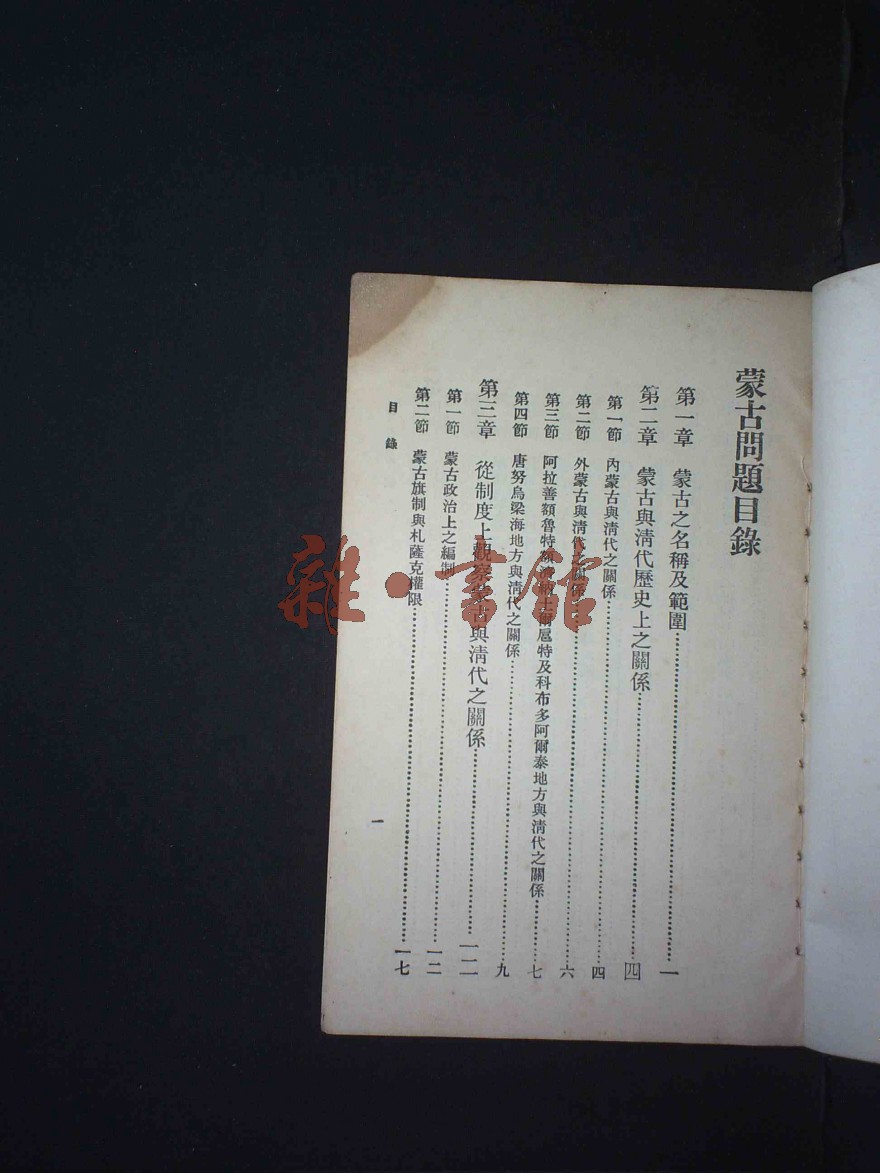 蒙古問題目錄
第一章 蒙古之名稱及範圍……一
第二章 蒙古與清代歷史上之關係……四
第一節 內蒙古與清代之關係……四
第二節 外蒙古與清代之關係……六
第三節 阿拉善額魯特額濟納土爾扈特及科布多阿爾泰地方與清代之關係……七
第四節 唐努烏梁海地方與清代之關係……九
第三章 從制度上觀察蒙古與清代之關係……一二
第一節 蒙古政治上之編制……一二
第二節 蒙古旗制與札薩克權限……一七
目錄
一
雜·書館